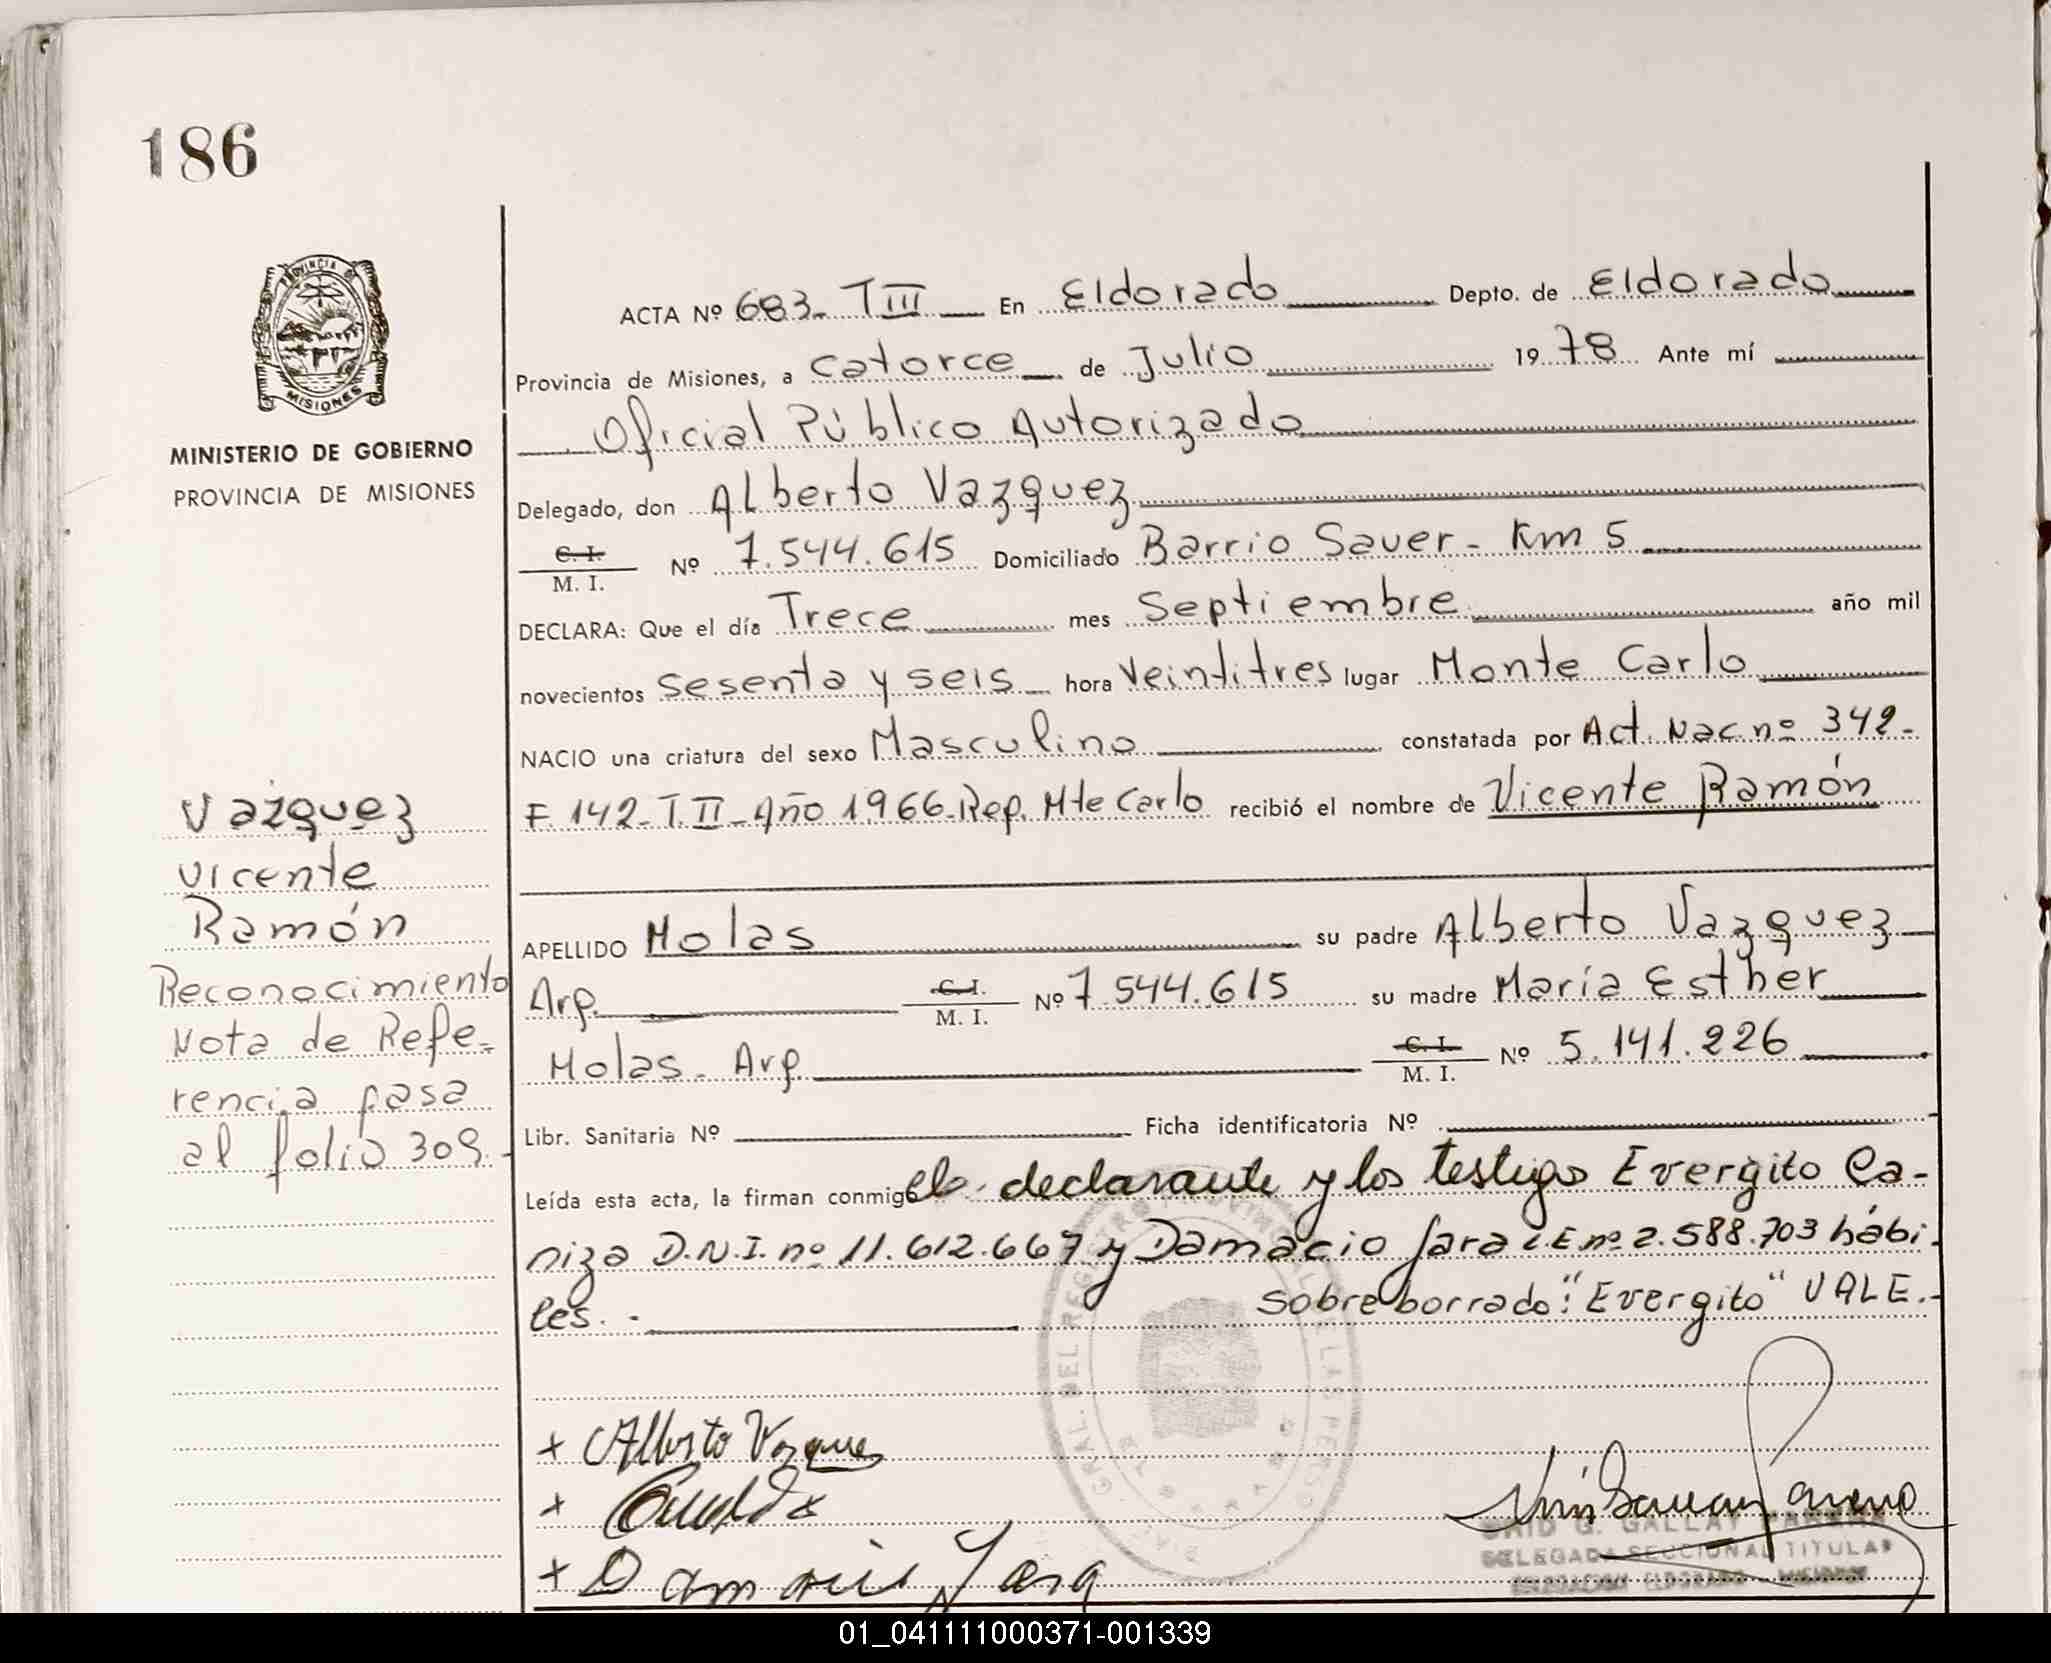 186
PROVINCIA DE
MISIONES
MINISTERIO DE GOBIERNO
PROVINCIA DE MISIONES
ACTA Nº 683- T III En Eldorado Depto. de Eldorado
Provincia de Misiones, a catorce de Julio 1978 Ante mí
Oficial Público Autorizado
Delegado, don Alberto Vazquez
C. I.
M. I. Nº 7.544.615 Domiciliado Barrio Sauer - Km 5
DECLARA: Que el día Trece mes Septiembre año mil
novecientos sesenta y seis hora veintitres lugar Monte Carlo
NACIO una criatura del sexo Masculino constatada por Act. Nac. nº 342-
F. 142- T. II - Año 1966-Rep. Mte Carlo recibió el nombre de Vicente Ramón
APELLIDO Molas su padre Alberto Vazquez
Arg. C. I. M. I. Nº 7.544.615 su madre María Esther
Molas - Arg. C. I. M. I. Nº 5.141.226
Libr. Sanitaria Nº Ficha identificatoria Nº
Leída esta acta, la firman conmigo el declarante y los testigos Evergito Ca-
niza D.N.I. nº 11.612.667 y Damacio Jara LE nº 2.588.703 hábi-
les. - Sobre borrado: "Evergito" VALE.-
Vazquez
Vicente
Ramón
Reconocimiento
Nota de Refe-
rencia pasa
al folio 309.-
+ Alberto Vazquez
+
+ Damacio Jara
DELEGADA SECCIONAL TITULAR
01_041111000371-001339